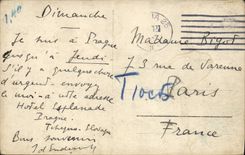 Dimanche
Je suis à Prague
jusqu'à Jeudi
s'il y a quelque chose
d'urgent - envoyez
le moi - à cette adresse
Hotel Esplanade
Prague
Tchéco-Slovaquie
Bons souvenirs
Madame Bigot
73 rue de Varenne
Paris
France